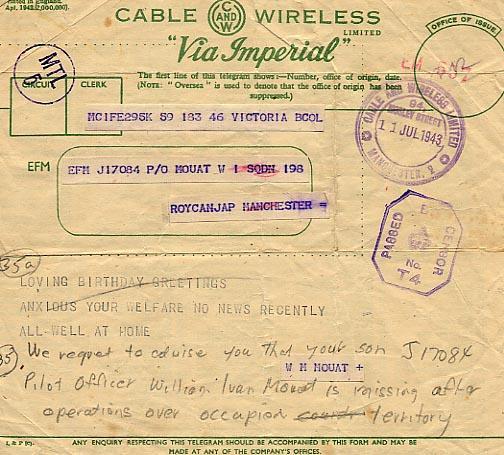 Printed in England.
Apr. 1943. (2,000,000).
CABLE AND WIRELESS
C AND W
LIMITED
"Via Imperial"
The first line of this telegram shows:—Number, office of origin, date.
(NOTE: "Oversea" is used to denote that the office of origin has been
suppressed.)
OFFICE OF ISSUE
MTL
5
CIRCUIT CLERK
CABLE AND WIRELESS LIMITED
94
STREET
11 JUL 1943
MANCHESTER. 2
MC1FE295K 59 183 46 VICTORIA BCOL
EFM
EFM J17084 P/O MOUAT W I SQDN 198
ROYCANJAP MANCHESTER =
PASSED
CENSOR
No.
T4
35a
LOVING BIRTHDAY GREETINGS
ANXIOUS YOUR WELFARE NO NEWS RECENTLY
ALL-WELL AT HOME
35
We regret to advise you that your son J17084
W M MOUAT +
Pilot Officer William Ivan Mouat is missing after
operations over occupion territory
L & P (C).
ANY ENQUIRY RESPECTING THIS TELEGRAM SHOULD BE ACCOMPANIED BY THIS FORM AND MAY BE
MADE AT ANY OF THE COMPANY'S OFFICES.